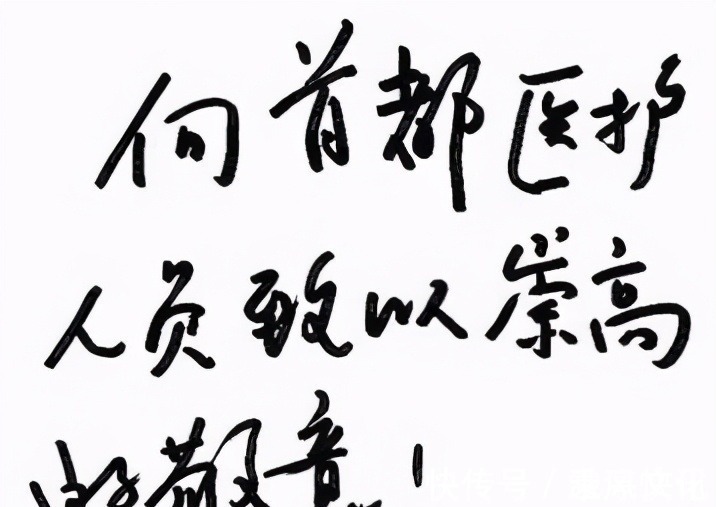 向首都医护
人员致以崇高
的敬意！
快传号/